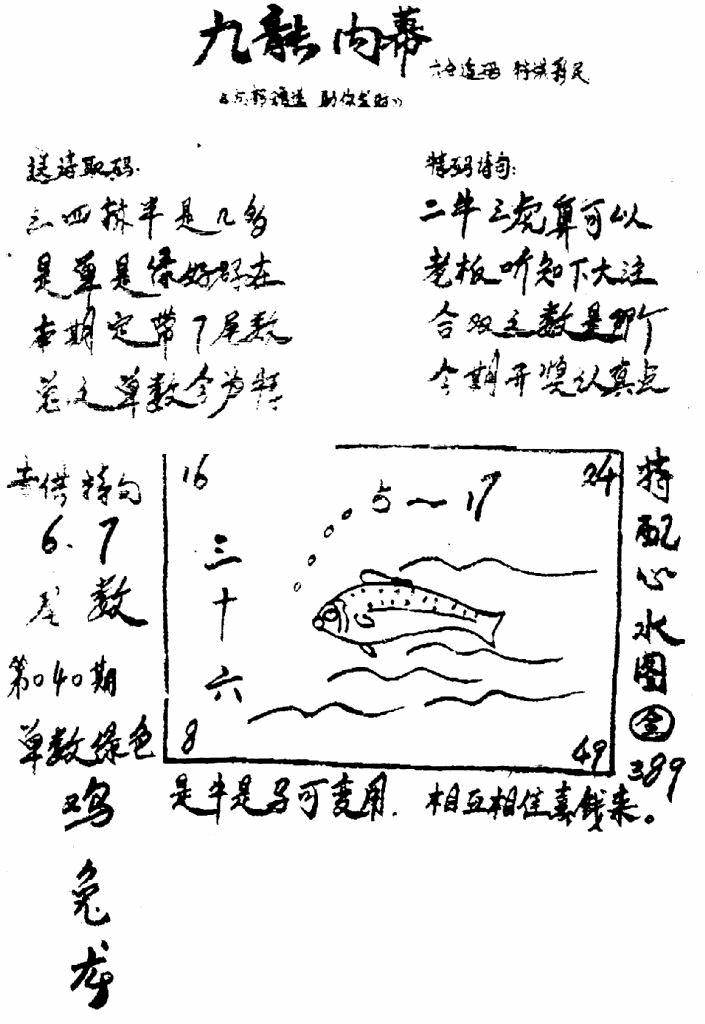 九龍内幕
六合造福 特供彩民
送诗取码.
三四棘半是几多
是单是绿好好在
本期定带7尾数
单数今为特
特码诗句:
二牛三虎算可以
老板听知下大注
合双之数是那个
今期开奖认真点
供特句
6.7
尾数
第040期
单数绿色
鸡
兔
龙
16
24
5~17
三十六
8
49
特配心水图
金
389
是牛是马可变用. 相互相佳喜钱来。